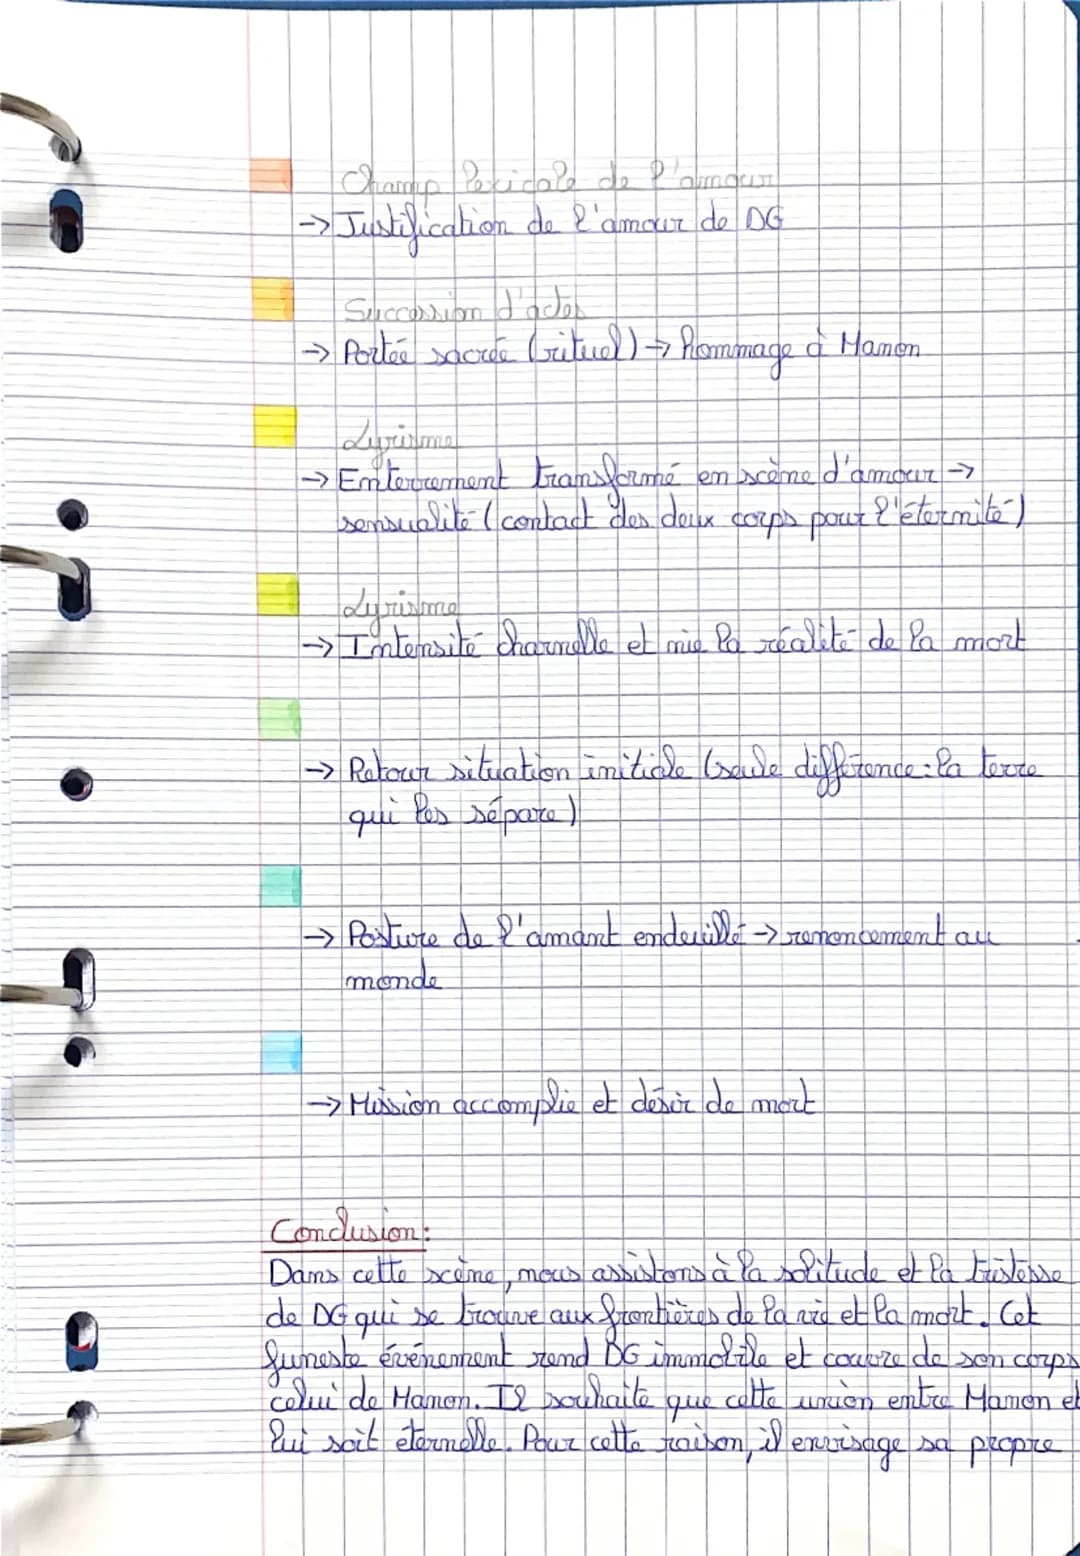 Champ lexicale de l'amour
→ Justification de l'amour de DG
Succession d'actes
→ Portée sacrée (rituel) → hommage à Manon
Lyrisme
→ Enterrement transformé en scène d'amour →
sensualité (contact des deux corps pour l'éternité)
Lyrisme
→ Intensité charnelle et nie la réalité de la mort
→ Retour situation initiale (seule différence : la terre
qui les sépare)
→ Posture de l'amant endeuillé → renoncement au
monde
→ Mission accomplie et désir de mort
Conclusion :
Dans cette scène, nous assistons à la solitude et la tristesse
de DG qui se trouve aux frontières de la vie et la mort. Cet
funeste événement rend DG immobile et couvre de son corps
celui de Manon. Il souhaite que cette union entre Manon et
lui soit éternelle. Pour cette raison, il envisage sa propre